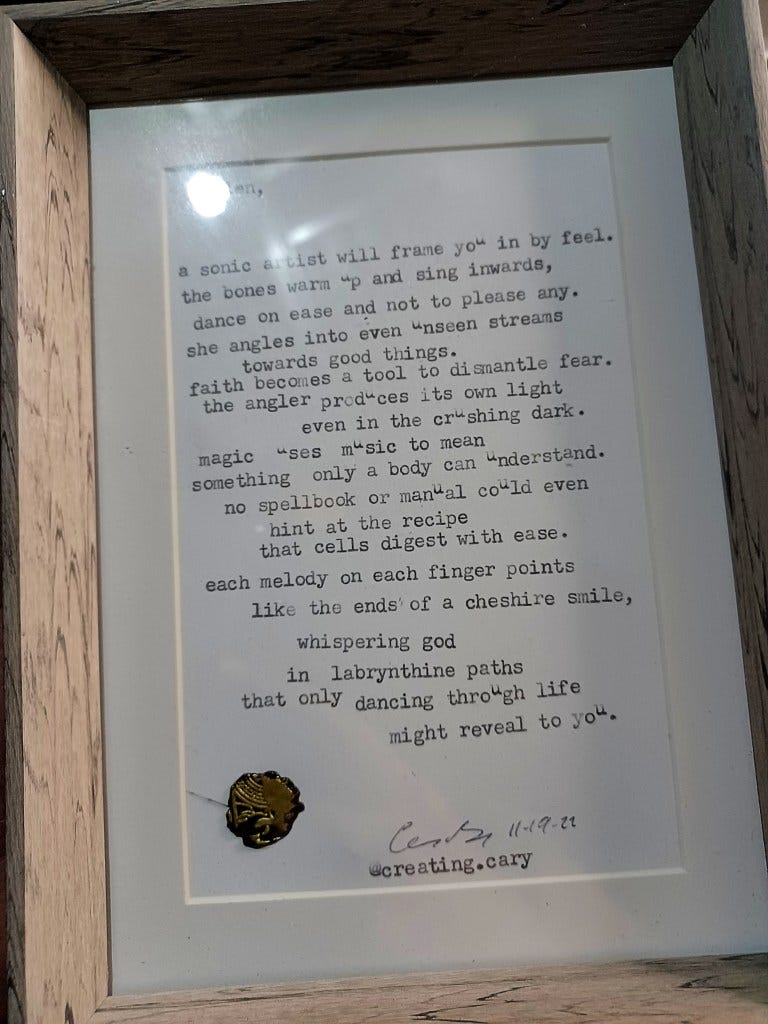 a sonic artist will frame you in by feel.
the bones warm up and sing inwards,
dance on ease and not to please any.
she angles into even unseen streams
towards good things.
faith becomes a tool to dismantle fear.
the angler produces its own light
even in the crushing dark.
magic uses music to mean
something only a body can understand.
no spellbook or manual could even
hint at the recipe
that cells digest with ease.
each melody on each finger points
like the ends of a cheshire smile,
whispering god
in labrynthine paths
that only dancing through life
might reveal to you.
11-19-22
@creating.cary